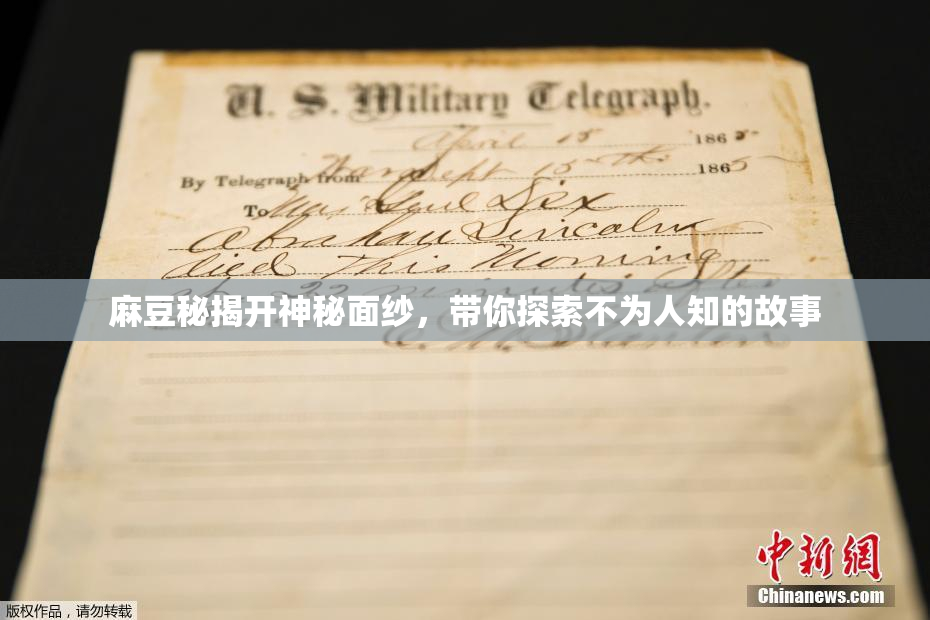 U. S. Military Telegraph.
April 15 1865
By Telegraph from War Dept 15th 1865
To Maj Genl Dix
Abraham Lincoln
died This Morning
at 22 minutes after
麻豆秘揭开神秘面纱，带你探索不为人知的故事
Stanton
中新網
Chinanews.com
版权作品，请勿转载